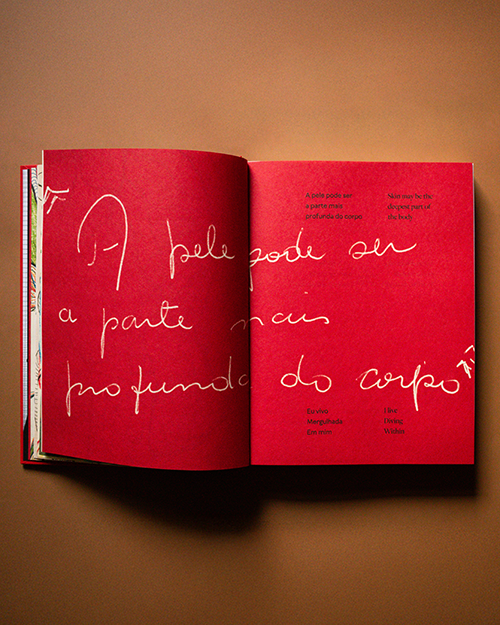 "A pele pode ser
a parte mais
profunda do corpo"
A pele pode ser
a parte mais
profunda do corpo
Skin may be the
deepest part of
the body
Eu vivo
Mergulhada
Em mim
I live
Diving
Within